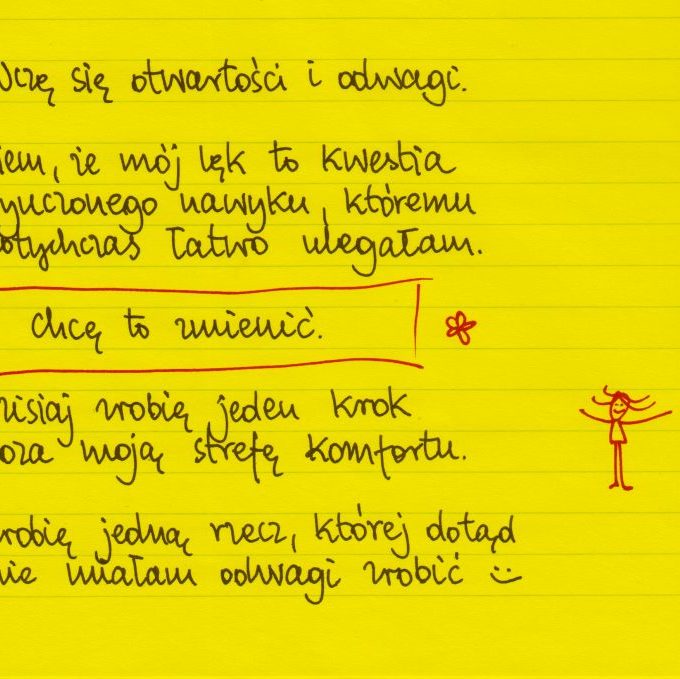 Uczę się otwartości i odwagi.
iem, że mój lęk to kwestia
yuczonego nawyku, któremu
otychczas łatwo ulegałam.
Chcę to zmienić.
zisiaj zrobię jeden krok
oza moją strefę komfortu.
robię jedną rzecz, której dotąd
nie miałam odwagi zrobić :)